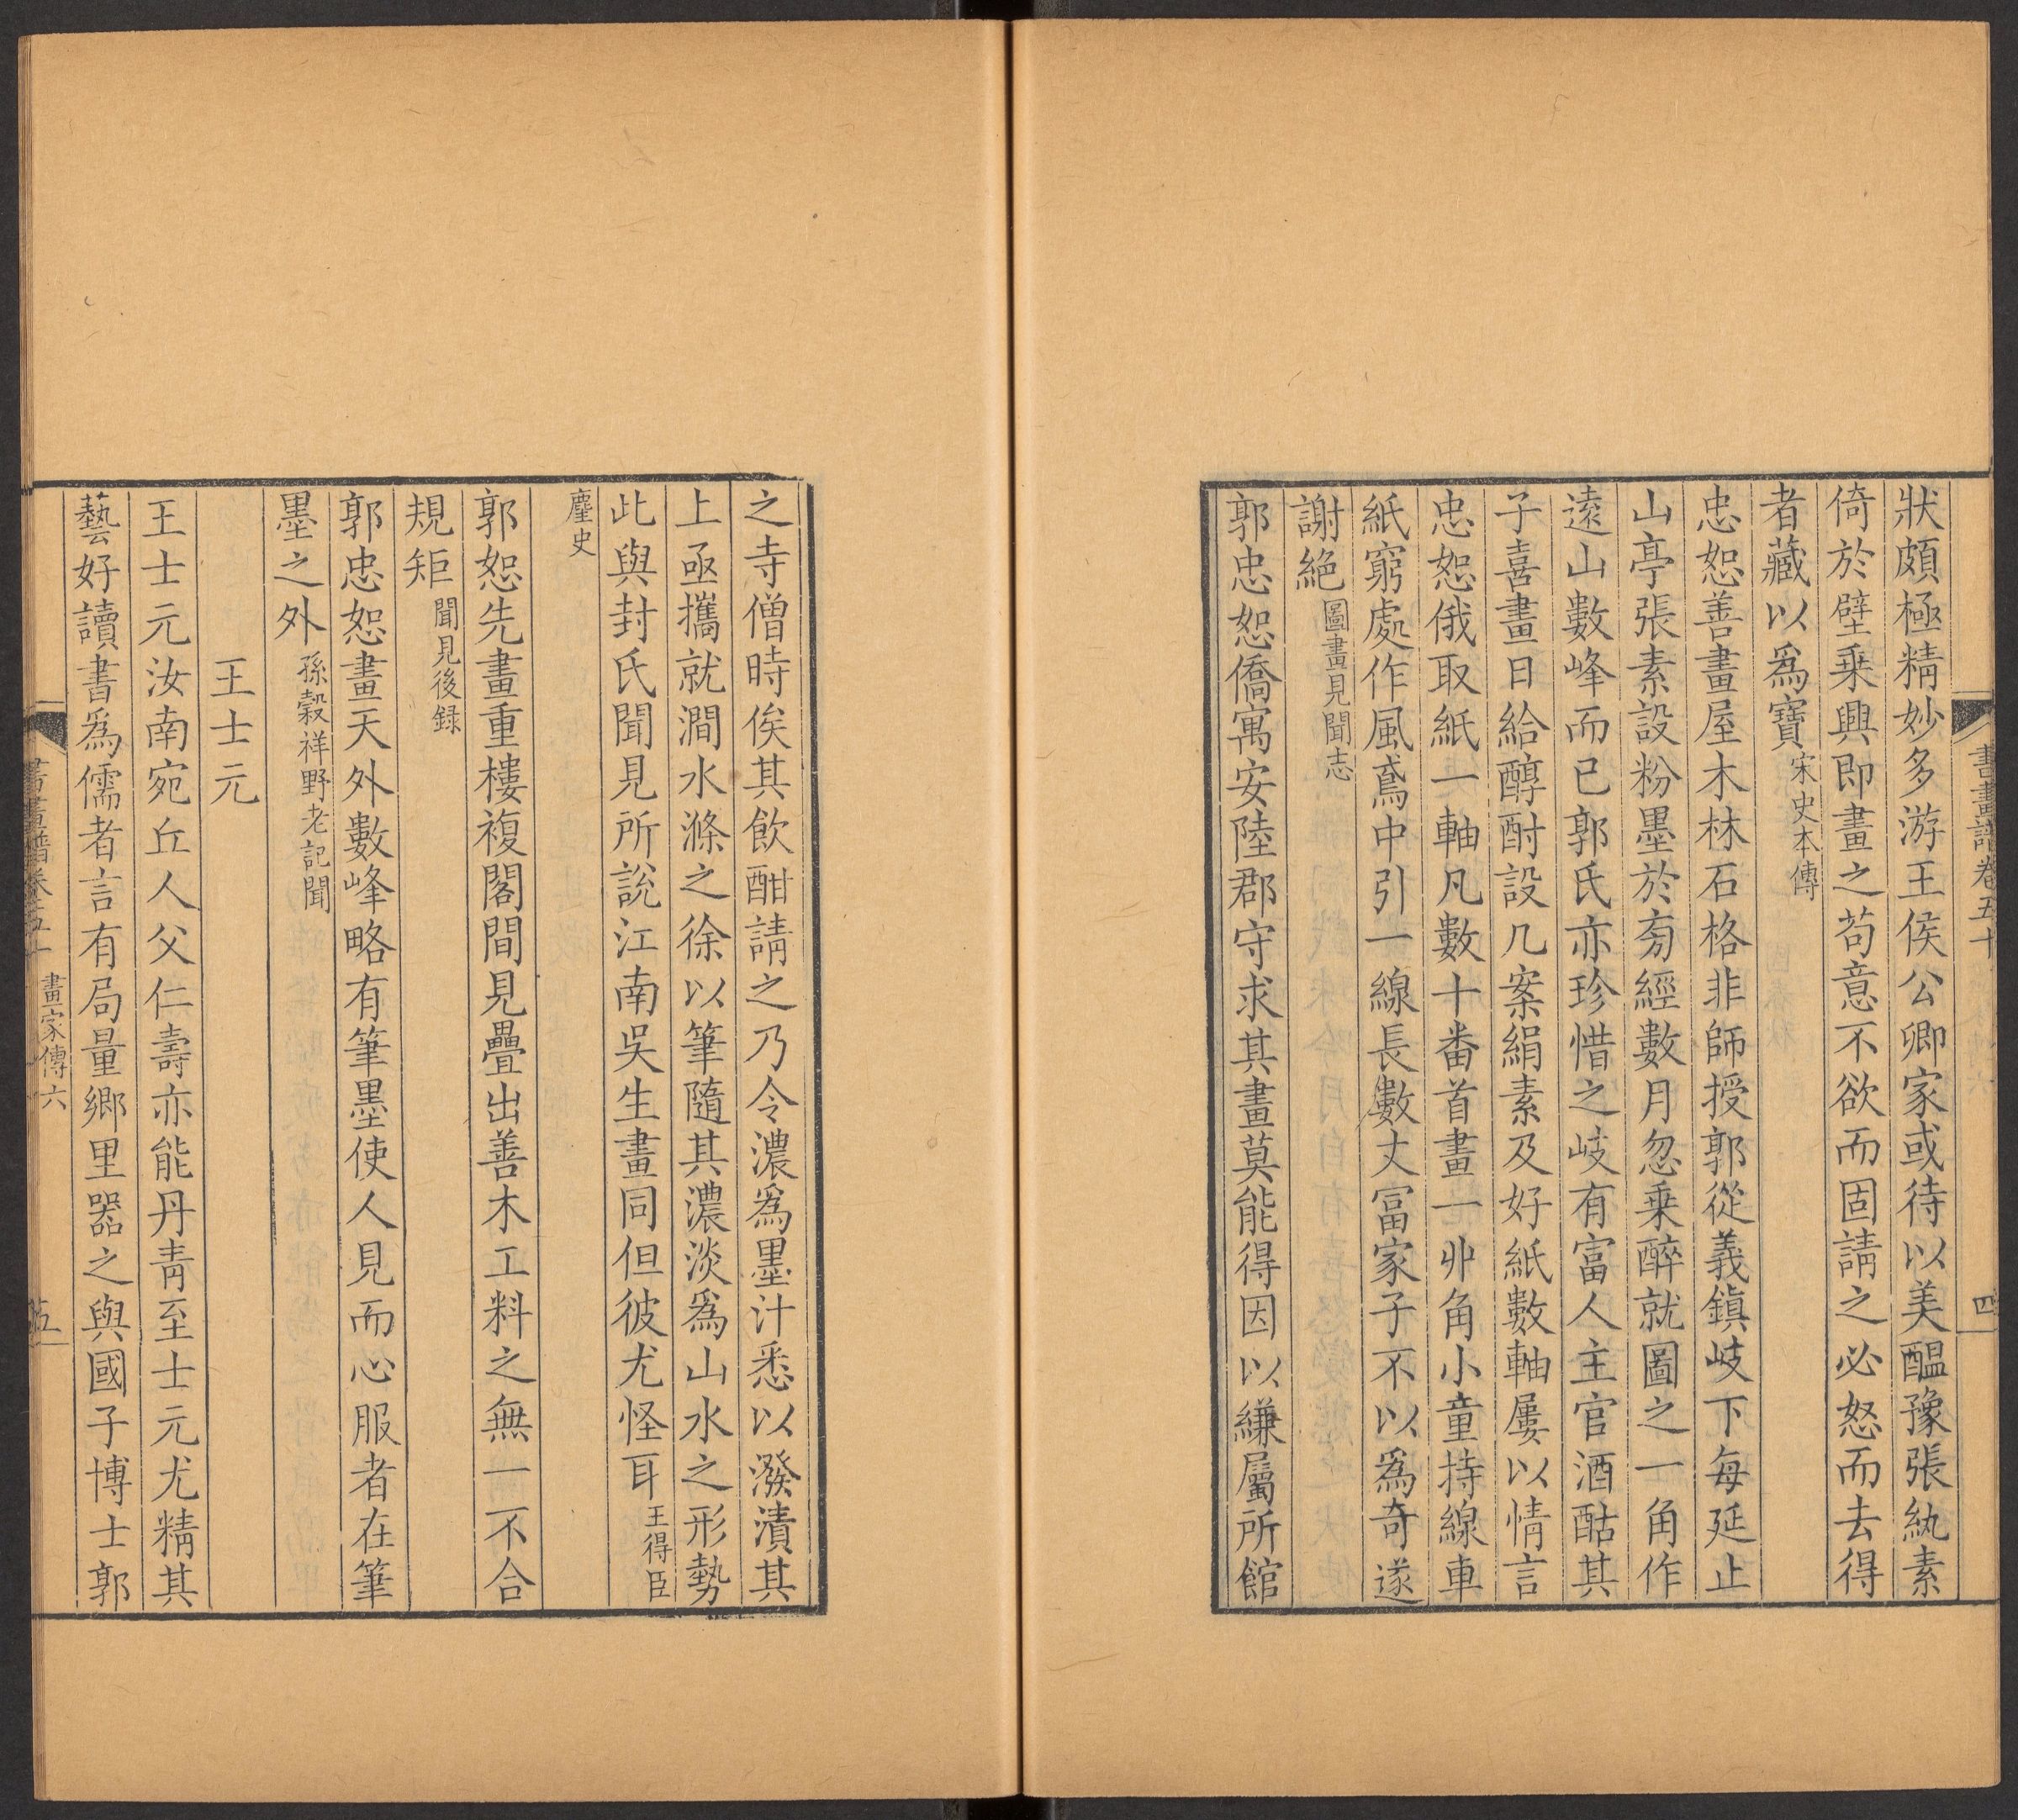 狀頗極精妙多游王侯公卿家或待以美醞豫張紈素
倚於壁乗興即畫之苟意不欲而固請之必怒而去得
者藏以爲寳宋史本傳
忠恕善畫屋木林石格非師授郭從義鎮岐下每延止
山亭張素設粉墨於㫄經數月忽乗醉就圖之一角作
逺山數峰而已郭氏亦珍惜之岐有富人主官酒酤其
子喜畫日給醇酎設几案絹素及好紙數軸屢以情言
忠恕俄取紙一軸凡數十番首畫一丱角小童持線車
紙窮處作風鳶中引一線長數丈富家子不以爲奇遂
謝絶圖畫見聞志
郭忠恕僑寓安陸郡守求其畫莫能得因以縑屬所館
書畫譜卷五十
四
之寺僧時俟其飲酣請之乃令濃爲墨汁悉以潑漬其
上亟攜就澗水滌之徐以筆隨其濃淡爲山水之形勢
此與封氏聞見所說江南吳生畫同但彼尤怪耳王得臣
麈史
郭恕先畫重樓複閣間見疊出善木工料之無一不合
規矩聞見後録
郭忠恕畫天外數峰略有筆墨使人見而心服者在筆
墨之外孫穀祥野老記聞
王士元
王士元汝南宛丘人父仁壽亦能丹靑至士元尤精其
藝好讀書爲儒者言有局量鄉里器之與國子博士郭
書畫譜卷五十 畫家傳六
五